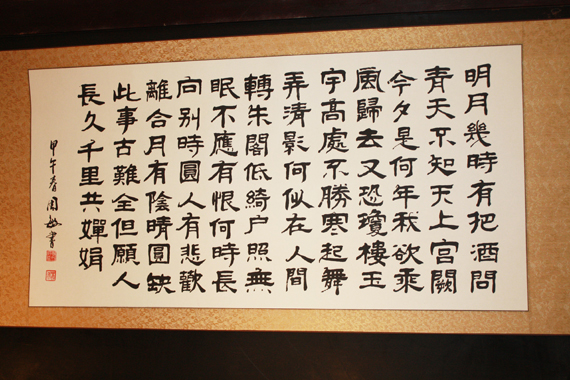 明月幾時有把酒問
青天不知天上宫闕
今夕是何年我欲乘
風歸去又恐瓊樓玉
宇高處不勝寒起舞
弄清影何似在人間
轉朱閣低綺户照無
眠不應有恨何時長
向别時圓人有悲歡
離合月有陰晴圓缺
此事古難全但願人
長久千里共嬋娟
甲午春周書